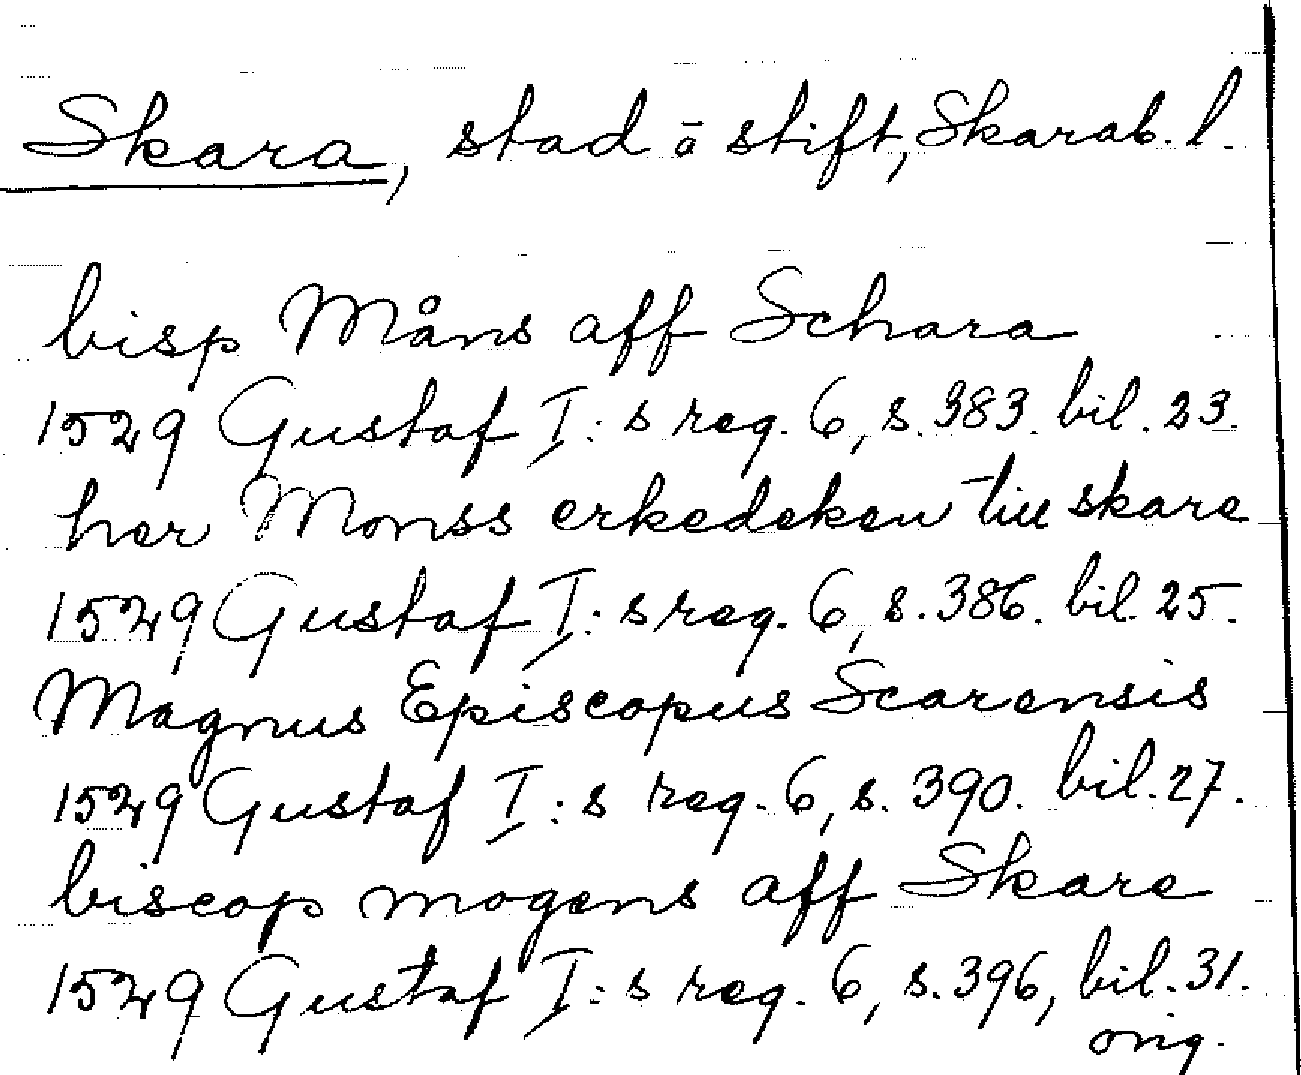 Skara, stad o stift, Skarab. l.
bisp Måns aff Schara
1529 Gustaf I:s reg. 6, s. 383. bil. 23.
her Monss erkedeken till skare
1529 Gustaf I:s reg. 6, s. 386. bil. 25.
Magnus Episcopus Scarensis
1529 Gustaf I:s reg. 6, s. 390. bil. 27.
biscop mogens aff Skare
1529 Gustaf I:s reg. 6, s. 396, bil. 31.
orig.